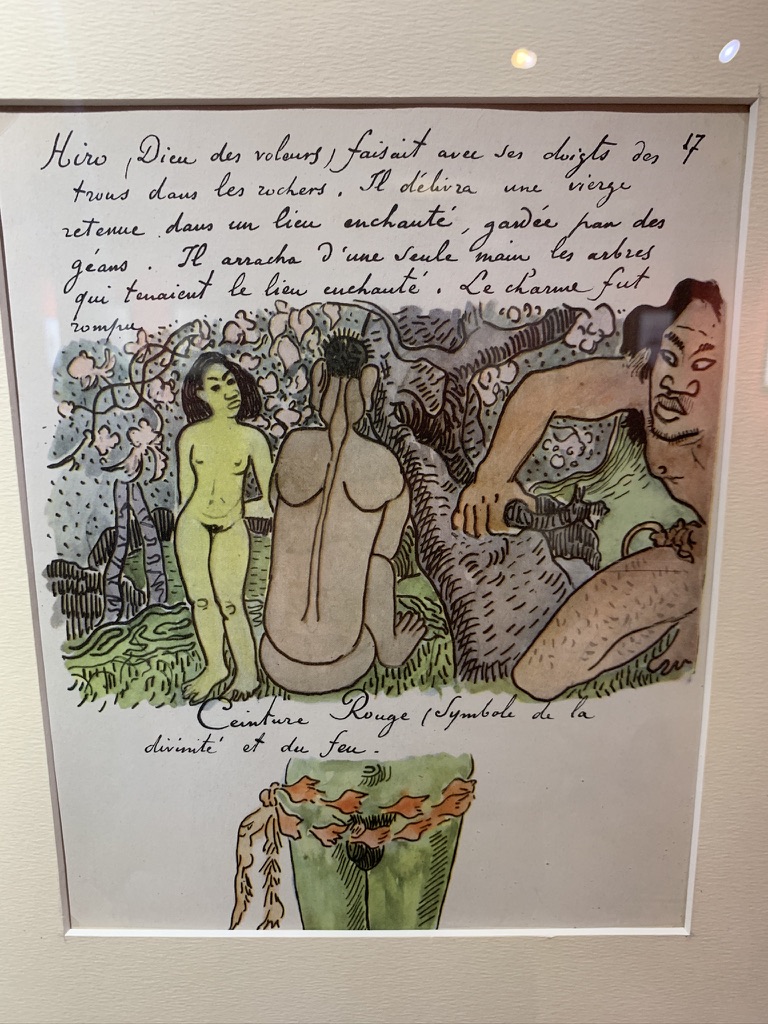 Hiro, (Dieu des voleurs) faisait avec ses doigts des 17
trous dans les rochers. Il délivra une vierge
retenue dans un lieu enchanté, gardée par des
géans. Il arracha d'une seule main les arbres
qui tenaient le lieu enchanté. Le charme fut
rompu
Ceinture Rouge (Symbole de la
divinité et du feu.